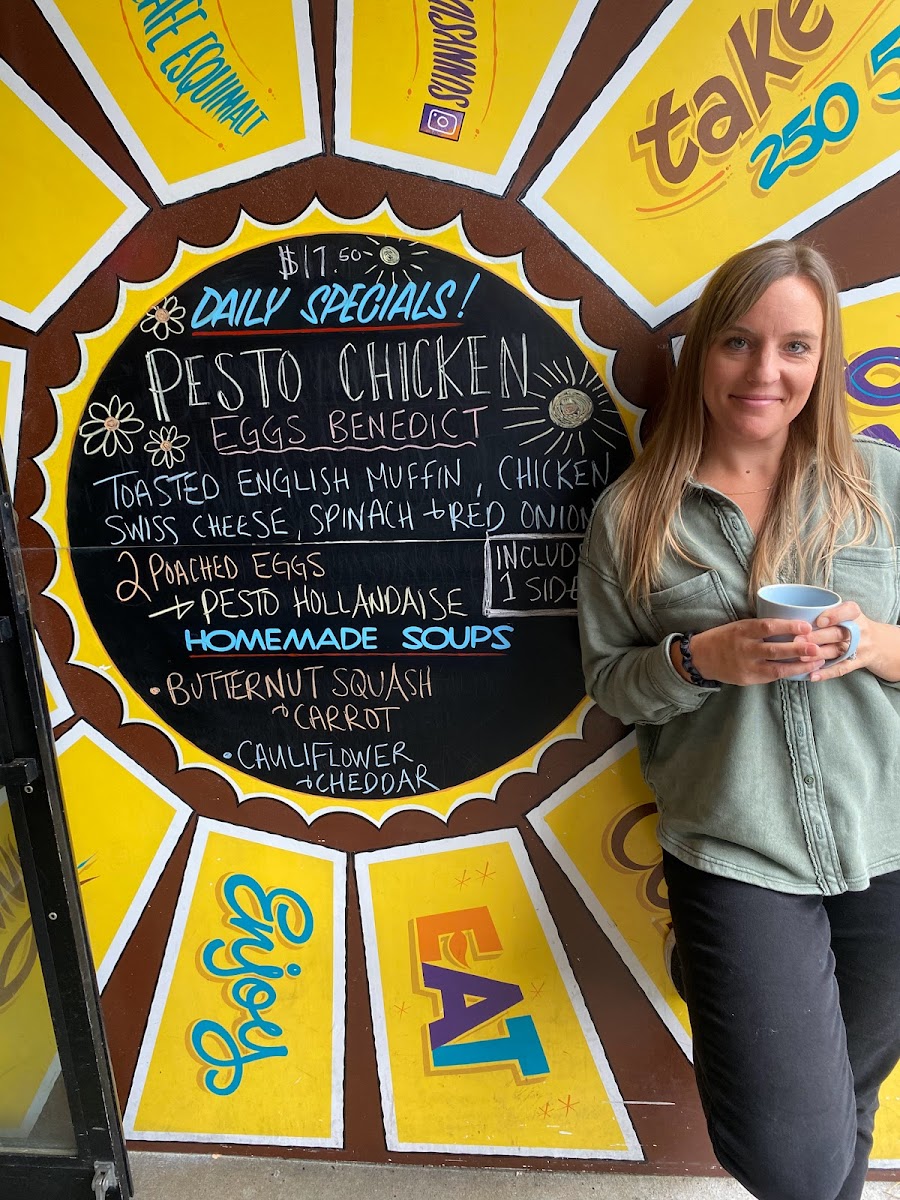 ESQUIMALT
take
250 5
$17.50
DAILY SPECIALS!
PESTO CHICKEN
EGGS BENEDICT
TOASTED ENGLISH MUFFIN, CHICKEN
SWISS CHEESE, SPINACH + RED ONION
2 POACHED EGGS
→ PESTO HOLLANDAISE
INCLUDE
1 SIDE
HOMEMADE SOUPS
• BUTTERNUT SQUASH
+ CARROT
• CAULIFLOWER
+ CHEDDAR
Enjoy
EAT